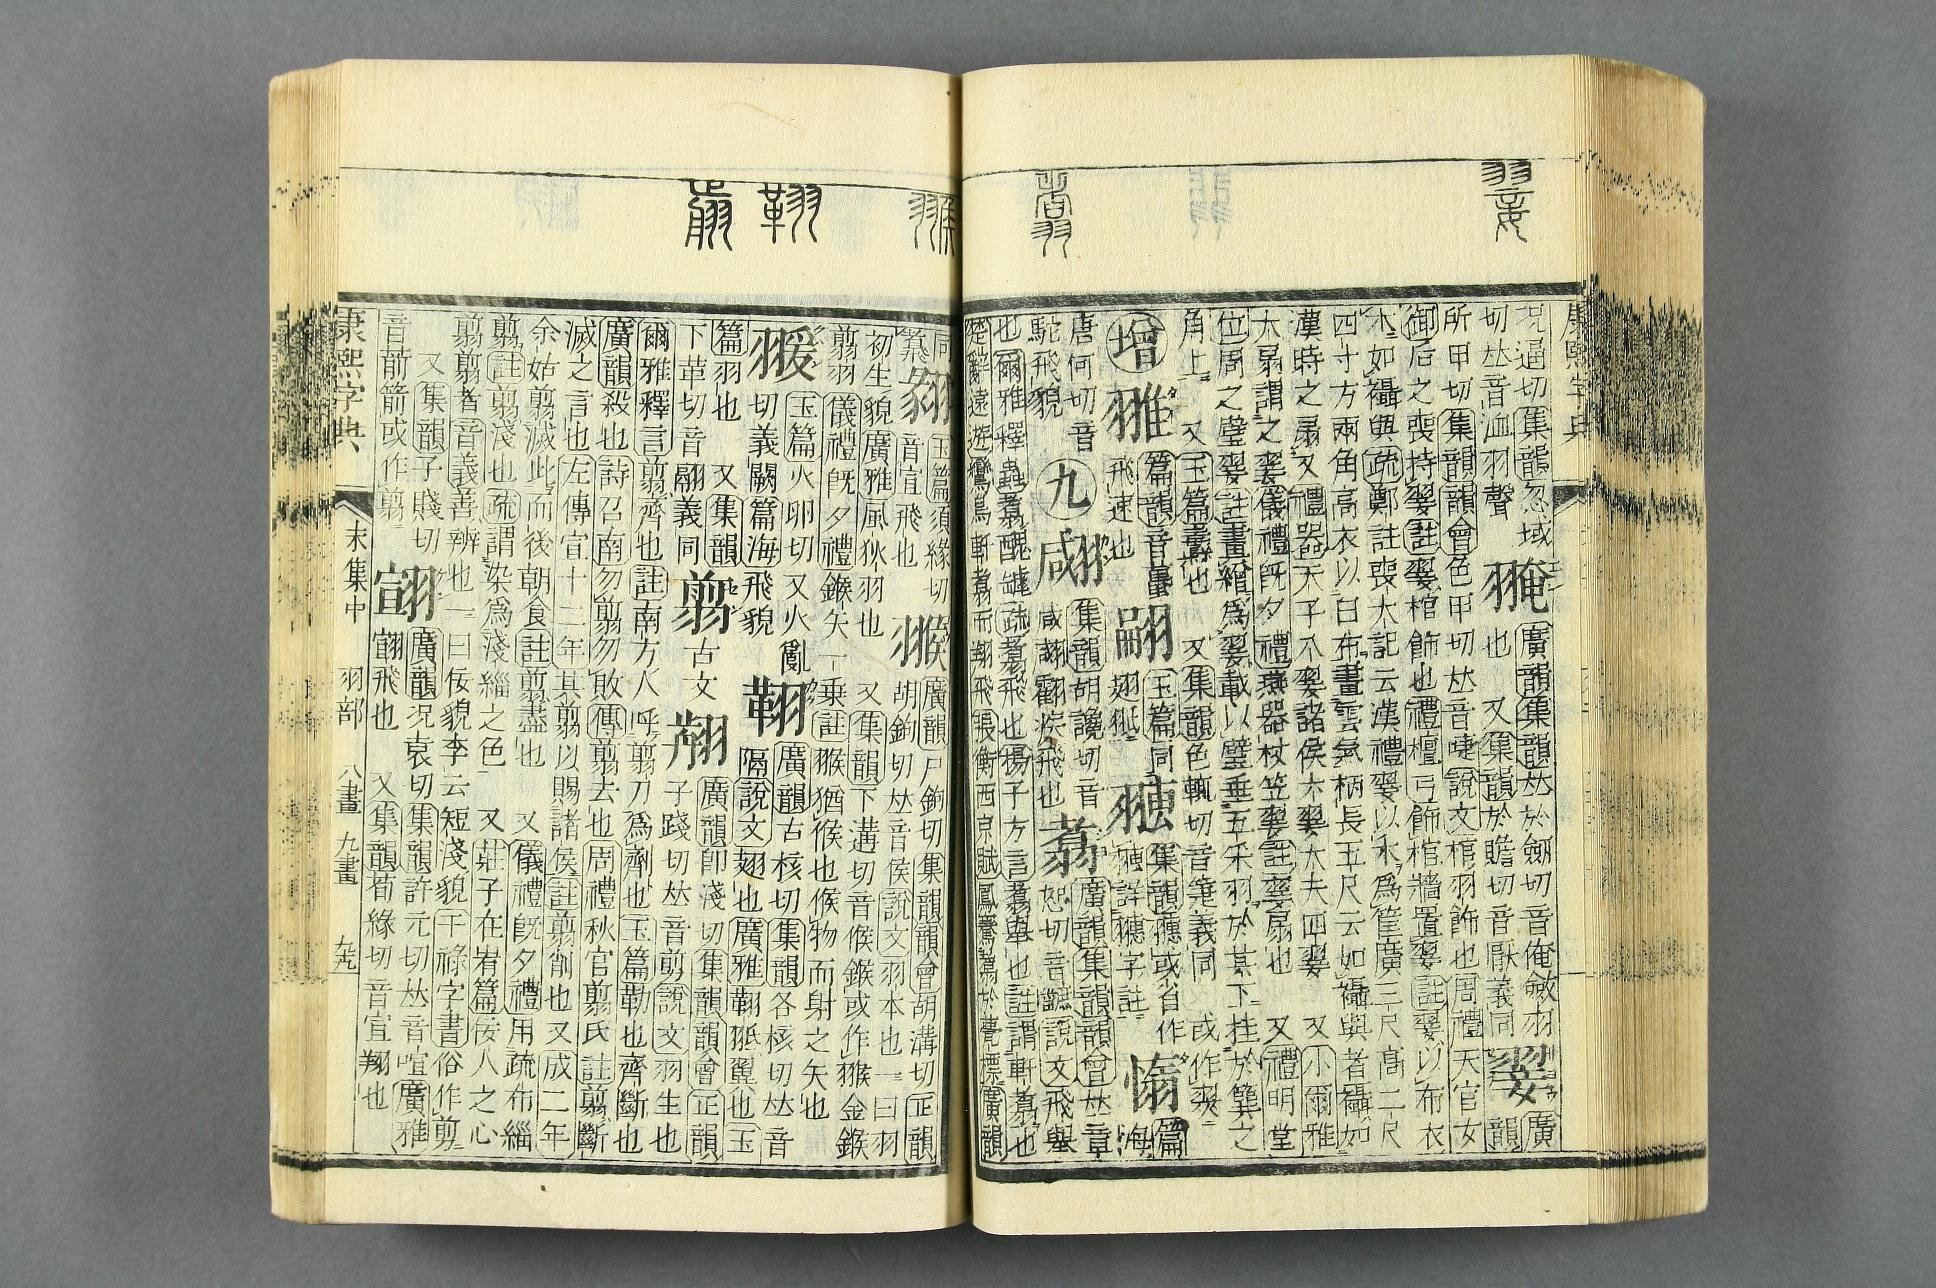 康熙字典
況逼切集韻忽域
切𠀤音洫羽聲
䎨
廣韻集韻𠀤於劒切音俺斂羽
也 又集韻於贍切音厭義同
翣
廣韻
所甲切集韻韻會色甲切𠀤音唼說文棺羽飾也周禮天官女
御后之喪持翣註翣棺飾也禮檀弓飾棺牆置翣註翣以布衣
木如襵與疏鄭註喪大記云漢禮翣以木爲筐廣三尺高二尺
四寸方兩角高衣以白布畫雲氣柄長五尺云如襵與者襵如
漢時之扇 又禮器天子八翣諸侯六翣大夫四翣 又小爾雅
大扇謂之翣儀禮旣夕禮燕器杖笠翣註翣扇也 又禮明堂
位周之璧翣註畫繒爲翣載以璧垂五采羽於其下挂於簨之
角上 又玉篇翥也 又集韻色輒切音箑義同 或作
增
篇韻音
飛速也
玉篇同
翅翄
集韻
或省作
字註
篇
海
唐何切音
駝飛貌
九
集韻胡讒切音
咸
飛也
翥
廣韻集韻韻會𠀤章
恕切音
說文飛舉
也爾雅釋蟲翥醜罅疏翥飛也揚子方言翥舉也註謂軒翥也
楚辭遠遊鸞鳥軒翥而翔飛張衡西京賦鳳騫翥於甍標廣韻
同
玉篇須緣切
音宣飛也
翭
廣韻戸鉤切集韻韻會胡溝切正韻
胡鉤切𠀤音侯說文羽本也一曰羽
初生貌廣雅風狄羽也 又集韻下遘切音候鍭或作翭金鍭
翦羽儀禮旣夕禮鍭矢一乗註翭猶候也候物而射之矢也
玉篇火卵切 又火亂
切義闕篇海飛貌
䎒
廣韻古核切集韻各核切𠀤音
隔說文翅也廣雅䎒翄翼也玉
篇羽也 又集韻
下革切音翮義同
翦
古文
廣韻卽淺切集韻韻會正韻
子踐切𠀤音剪說文羽生也
爾雅釋言翦齊也註南方人呼翦刀爲劑也玉篇勒也齊斷也
廣韻殺也詩召南勿翦勿敗傳翦去也周禮秋官翦氏註翦斷
滅之言也左傳宣十二年其翦以賜諸侯註翦削也又成二年
余姑翦滅此而後朝食註翦盡也 又儀禮旣夕禮用疏布緇
翦註翦淺也疏謂染爲淺緇之色 又莊子在宥篇佞人之心
翦翦者音義善辨也一曰佞貌李云短淺貌干祿字書俗作剪
又集韻子賤切
音前箭或作翦
翧
廣韻況袁切集韻許元切𠀤音喧廣雅
翧飛也 又集韻荀緣切音宣翔也
康熙字典
未集中 羽部 八畫 九畫